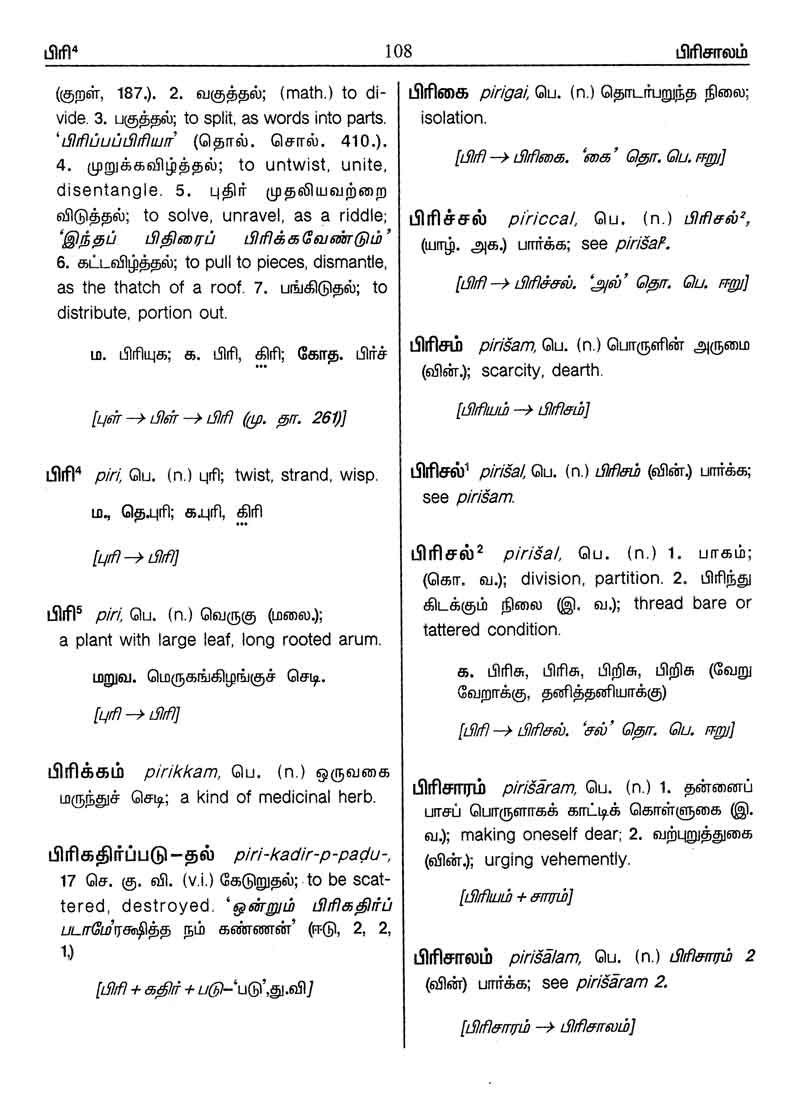 பிரி⁴
108
பிரிசாலம்
(குறள், 187.). 2. வகுத்தல்; (math.) to di-
vide. 3. பகுத்தல்; to split, as words into parts.
‘பிரிப்பப்பிரியா’ (தொல். சொல். 410.).
4. முறுக்கவிழ்த்தல்; to untwist, unite,
disentangle. 5. புதிர் முதலியவற்றை
விடுத்தல்; to solve, unravel, as a riddle;
‘இந்தப் பிதிரைப் பிரிக்கவேண்டும்’
6. கட்டவிழ்த்தல்; to pull to pieces, dismantle,
as the thatch of a roof. 7. பங்கிடுதல்; to
distribute, portion out.
ம. பிரியுக; க. பிரி, கிரி; கோத. பிர்ச்
[புள் → பிள் → பிரி (மு. தா. 261)]
பிரி⁴ piri, பெ. (n.) புரி; twist, strand, wisp.
ம., தெ.புரி; க.புரி, கிரி
[புரி → பிரி]
பிரி⁵ piri, பெ. (n.) வெருகு (மலை.);
a plant with large leaf, long rooted arum.
மறுவ. மெருகங்கிழங்குச் செடி.
[புரி → பிரி]
பிரிக்கம் pirikkam, பெ. (n.) ஒருவகை
மருந்துச் செடி; a kind of medicinal herb.
பிரிகதிர்ப்படு–தல் piri-kadir-p-paḍu-,
17 செ. கு. வி. (v.i.) கேடுறுதல்; to be scat-
tered, destroyed. ‘ஒன்றும் பிரிகதிர்ப்
படாமே’ரக்ஷித்த நம் கண்ணன்’ (ஈடு, 2, 2,
1.)
[பிரி + கதிர் + படு–‘படு’,து.வி]
பிரிகை pirigai, பெ. (n.) தொடர்பறுந்த நிலை;
isolation.
[பிரி → பிரிகை. ‘கை’ தொ. பெ. ஈறு]
பிரிச்சல் piriccal, பெ. (n.) பிரிசல்²,
(யாழ். அக.) பார்க்க; see pirišal².
[பிரி → பிரிச்சல். ‘அல்’ தொ. பெ. ஈறு]
பிரிசம் pirišam, பெ. (n.) பொருளின் அருமை
(வின்.); scarcity, dearth.
[பிரியம் → பிரிசம்]
பிரிசல்¹ pirišal, பெ. (n.) பிரிசம் (வின்.) பார்க்க;
see pirišam.
பிரிசல்² pirišal, பெ. (n.) 1. பாகம்;
(கொ. வ.); division, partition. 2. பிரிந்து
கிடக்கும் நிலை (இ. வ.); thread bare or
tattered condition.
க. பிரிசு, பிரிசு, பிறிசு, பிறிசு (வேறு
வேறாக்கு, தனித்தனியாக்கு)
[பிரி → பிரிசல். ‘சல்’ தொ. பெ. ஈறு]
பிரிசாரம் pirišāram, பெ. (n.) 1. தன்னைப்
பாசப் பொருளாகக் காட்டிக் கொள்ளுகை (இ.
வ.); making oneself dear; 2. வற்புறுத்துகை
(வின்.); urging vehemently.
[பிரியம் + சாரம்]
பிரிசாலம் pirišālam, பெ. (n.) பிரிசாரம் 2
(வின்) பார்க்க; see pirišāram 2.
[பிரிசாரம் → பிரிசாலம்]